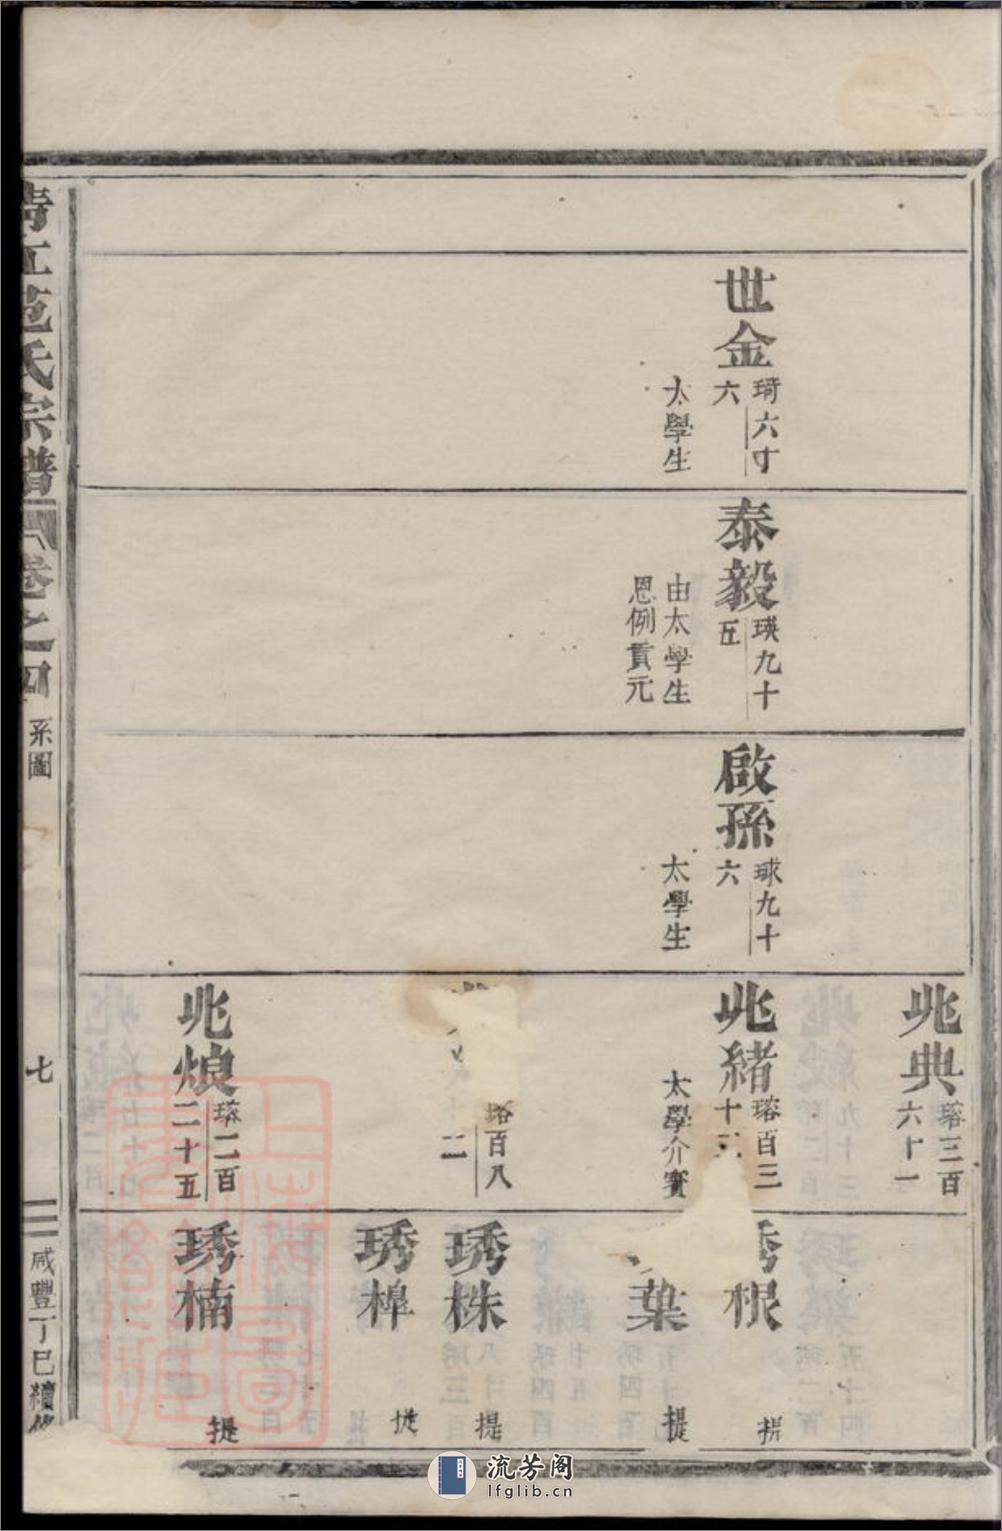 世金
琦六十
六
太學生
泰毅
瑛九十
五
由太學生
恩例貢元
啟孫
球九十
六
太學生
兆典
瑢三百
六十一
兆緒
瑢百三
十三
太學介賓
瑢百八
二
兆烺
瑢二百
二十五
琇根
提
葉
提
琇株
提
琇槹
提
琇楠
提
清江范氏宗譜
卷之四
系圖
七
咸豐丁巳續修
上海圖書館藏
流芳阁
lfglib.cn